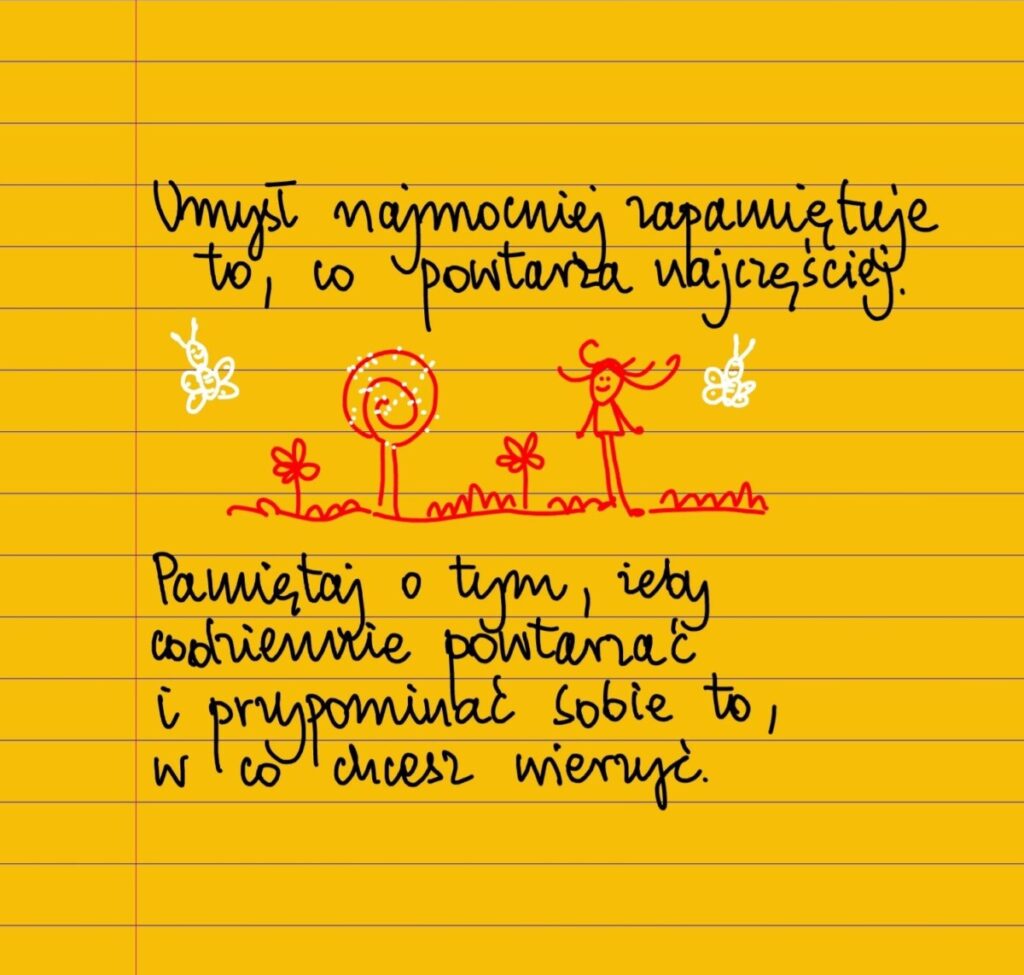 Umysł najmocniej zapamiętuje
to, co powtarza najczęściej.
Pamiętaj o tym, żeby
codziennie powtarzać
i przypominać sobie to,
w co chcesz wierzyć.